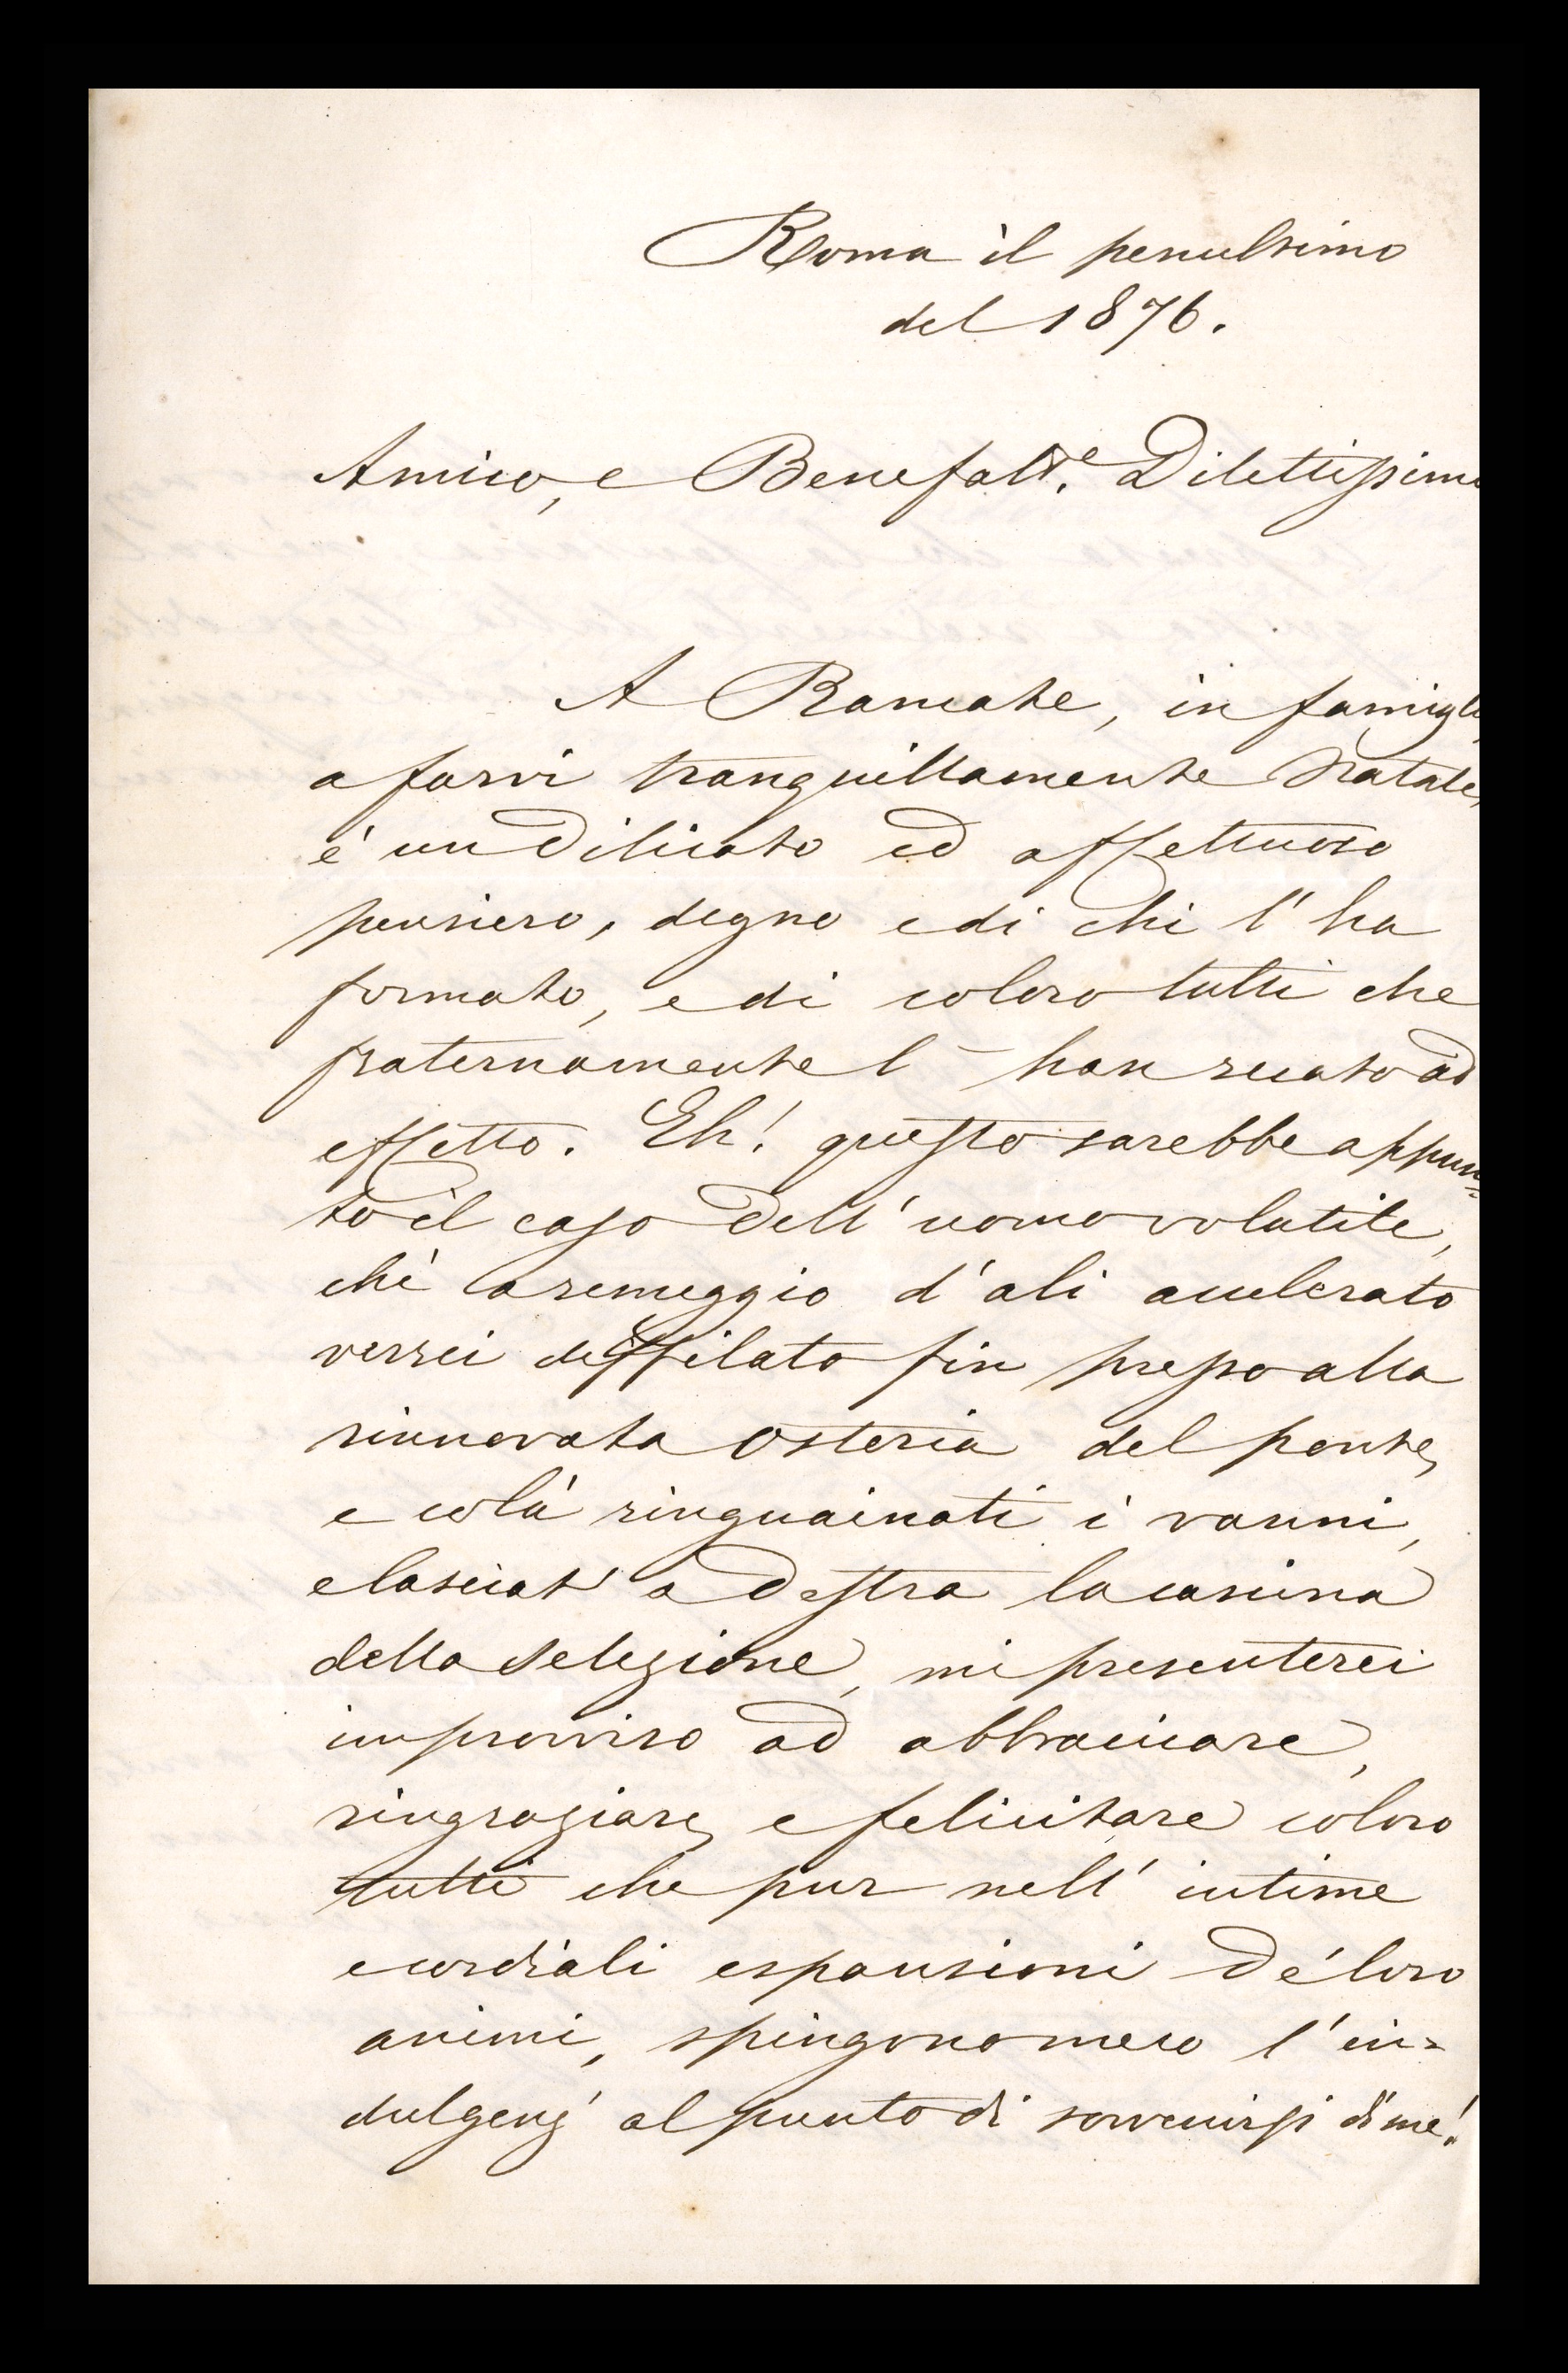 Roma il penultimo
del 1876.
Amico, e Benefatt.e Dilettissimo
A Rancate, in famiglia
a farvi tranquillamente Natale,
è un dilicato ed affettuoso
pensiero, degno e di chi l'ha
formato, e di coloro tutti che
fraternamente l'han recato ad
effetto. Eh! questo sarebbe appun=
to il caso dell'uomo volatile,
chè a remeggio d'ali accelerato
verrei diffilato fin presso alla
rinnovata osteria del ponte,
e colà ringuainati i vanni,
e lasciat' a destra la cascina
della Selezione, mi presenterei
improvviso ad abbracciare,
ringraziare, e felicitare coloro
tutti che pur nell'intime
e cordiali espansioni de' loro
animi, spingono meco l'in=
dulgenz' al punto di sovvenirsi di me!